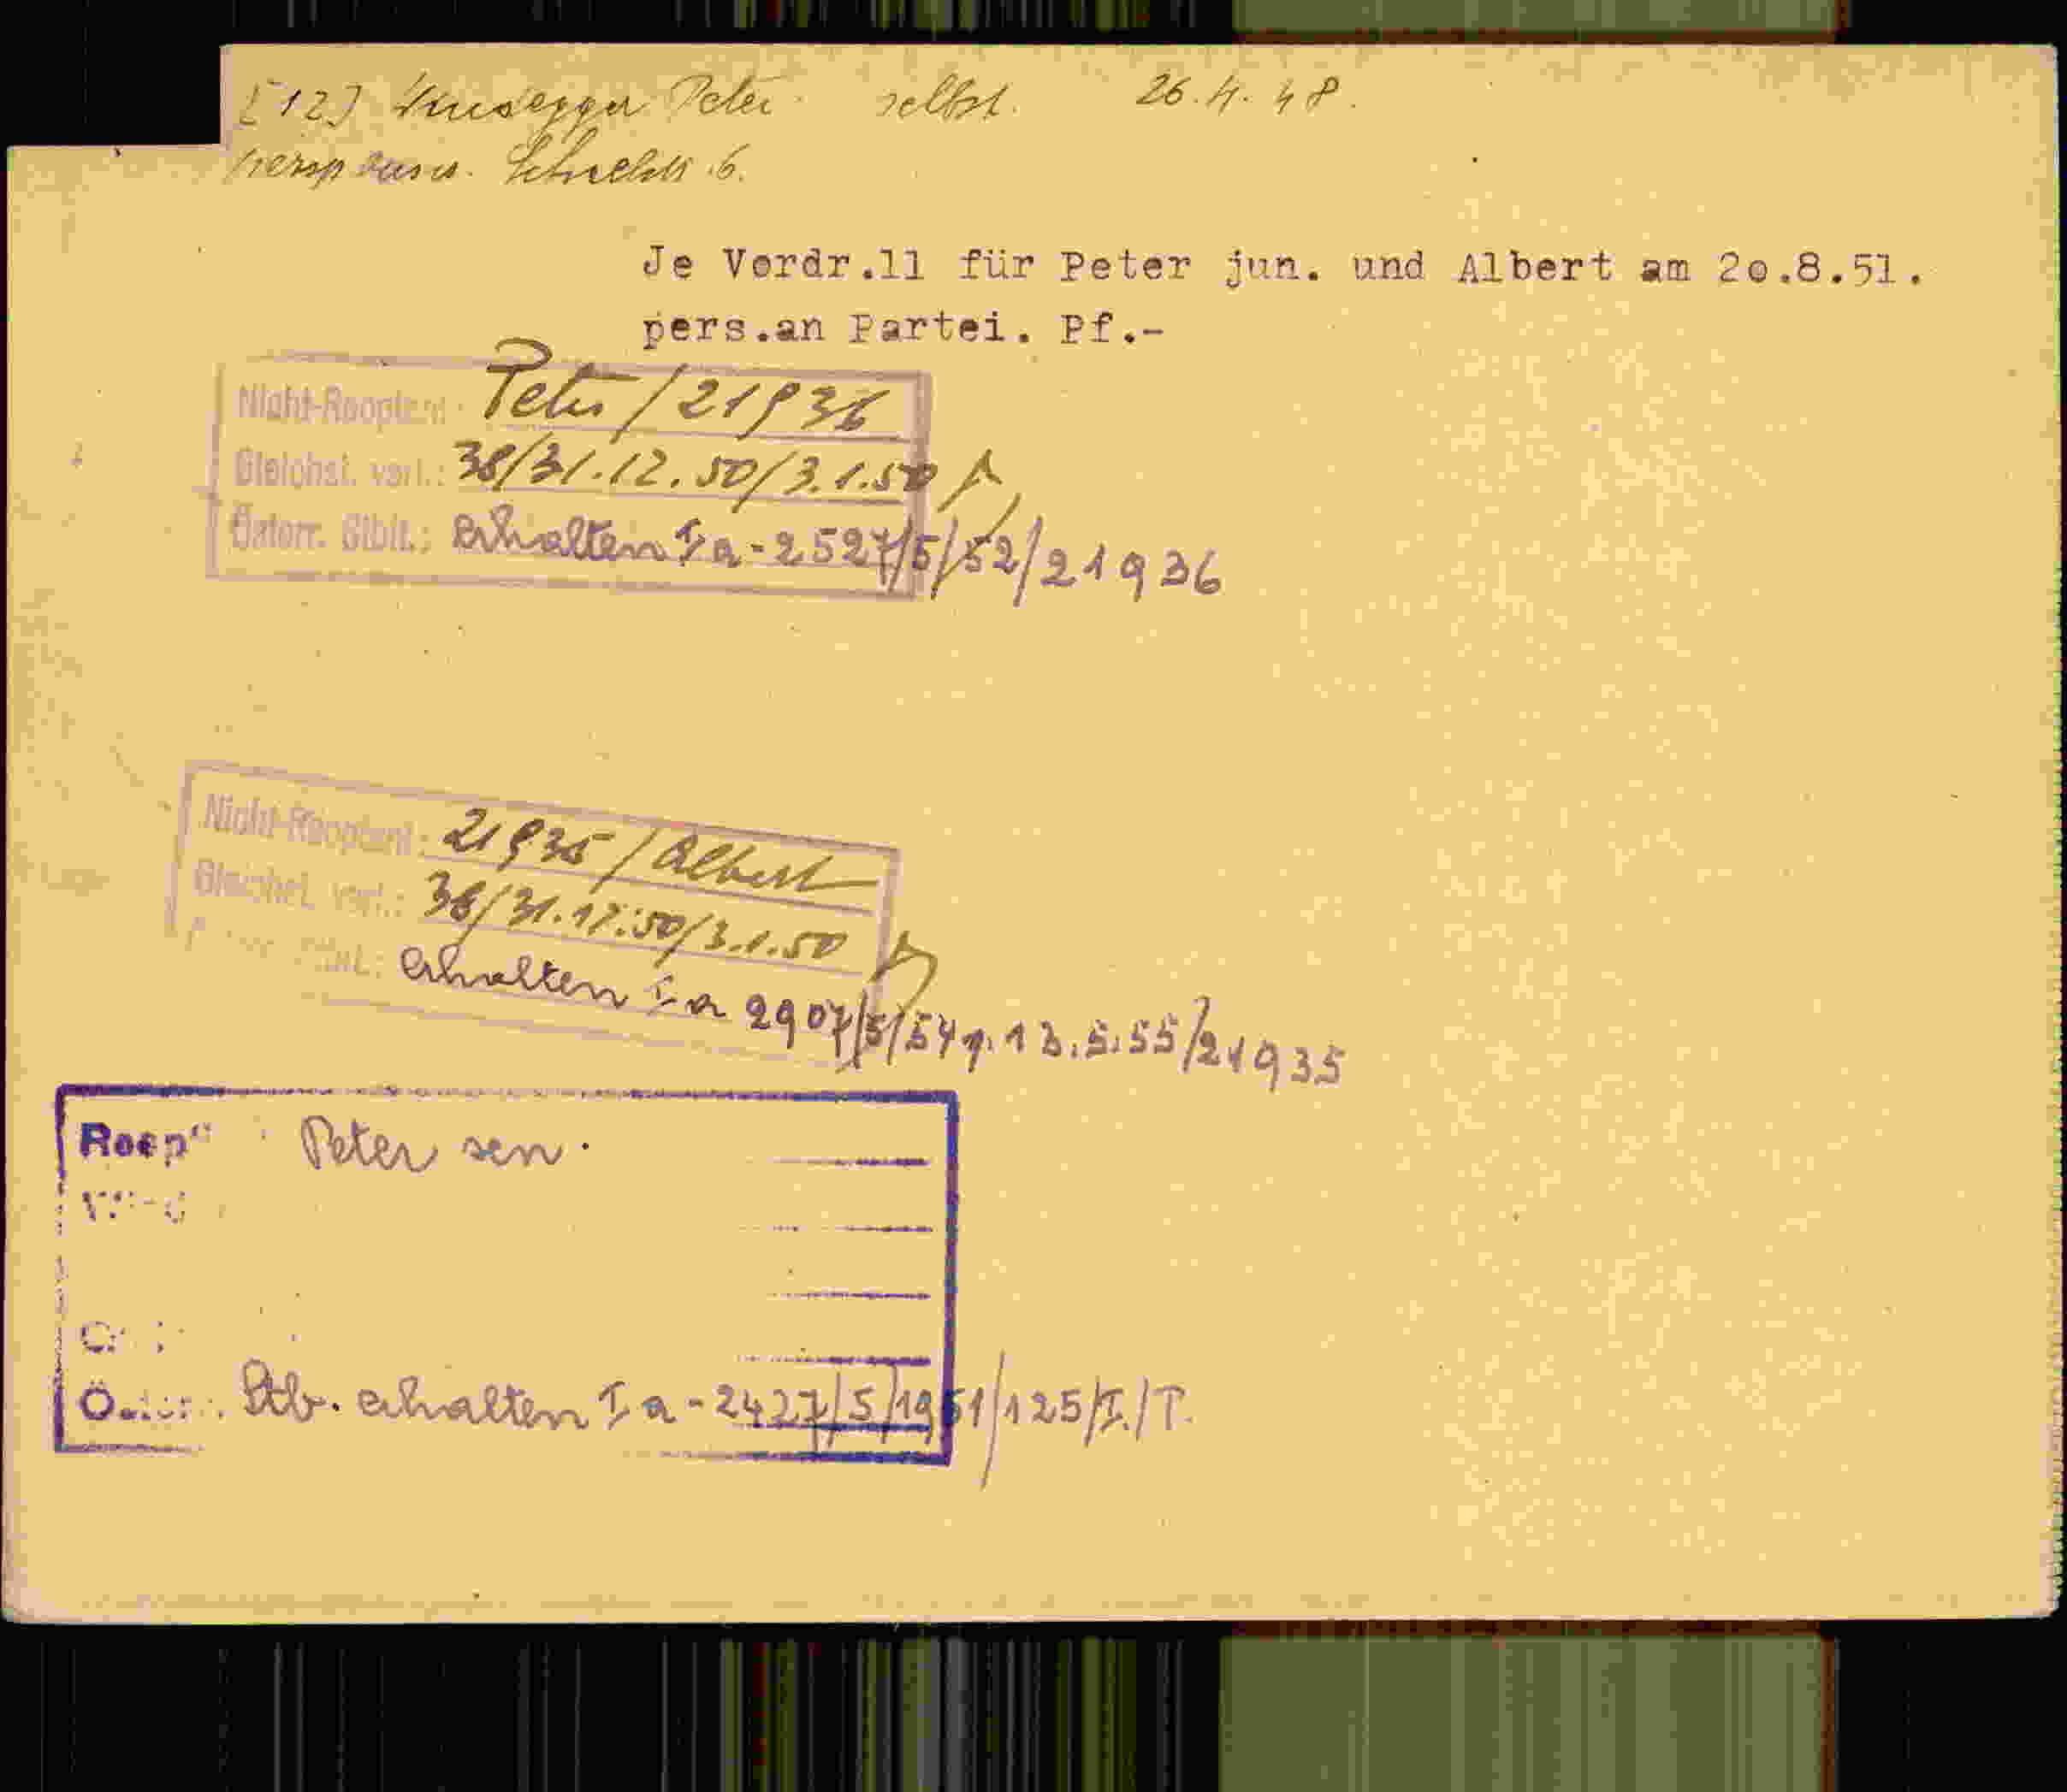 [12] Peter selbst. 26.4.48.
6.
Je Vordr.11 für Peter jun. und Albert am 2o.8.51.
pers.an Partei. Pf.-
Nicht-Reoptant: Peter / 21936
Gleichst. verl.: 38/31.12.50/3.1.50
Österr. Stbit.: erhalten I a - 2527/5/52/21936
Nicht-Reoptant: 21935 / Albert
Gleichst. verl.: 38/31.12.50/3.1.50
erhalten I a 2907/5/54 v. 13.5.55/21935
Peter sen.
Stb. erhalten I a - 2427/5/1951/125/I./P.